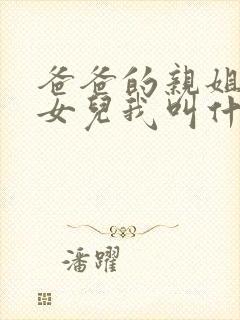 爸爸的親姐
女兒我叫什
潘躍